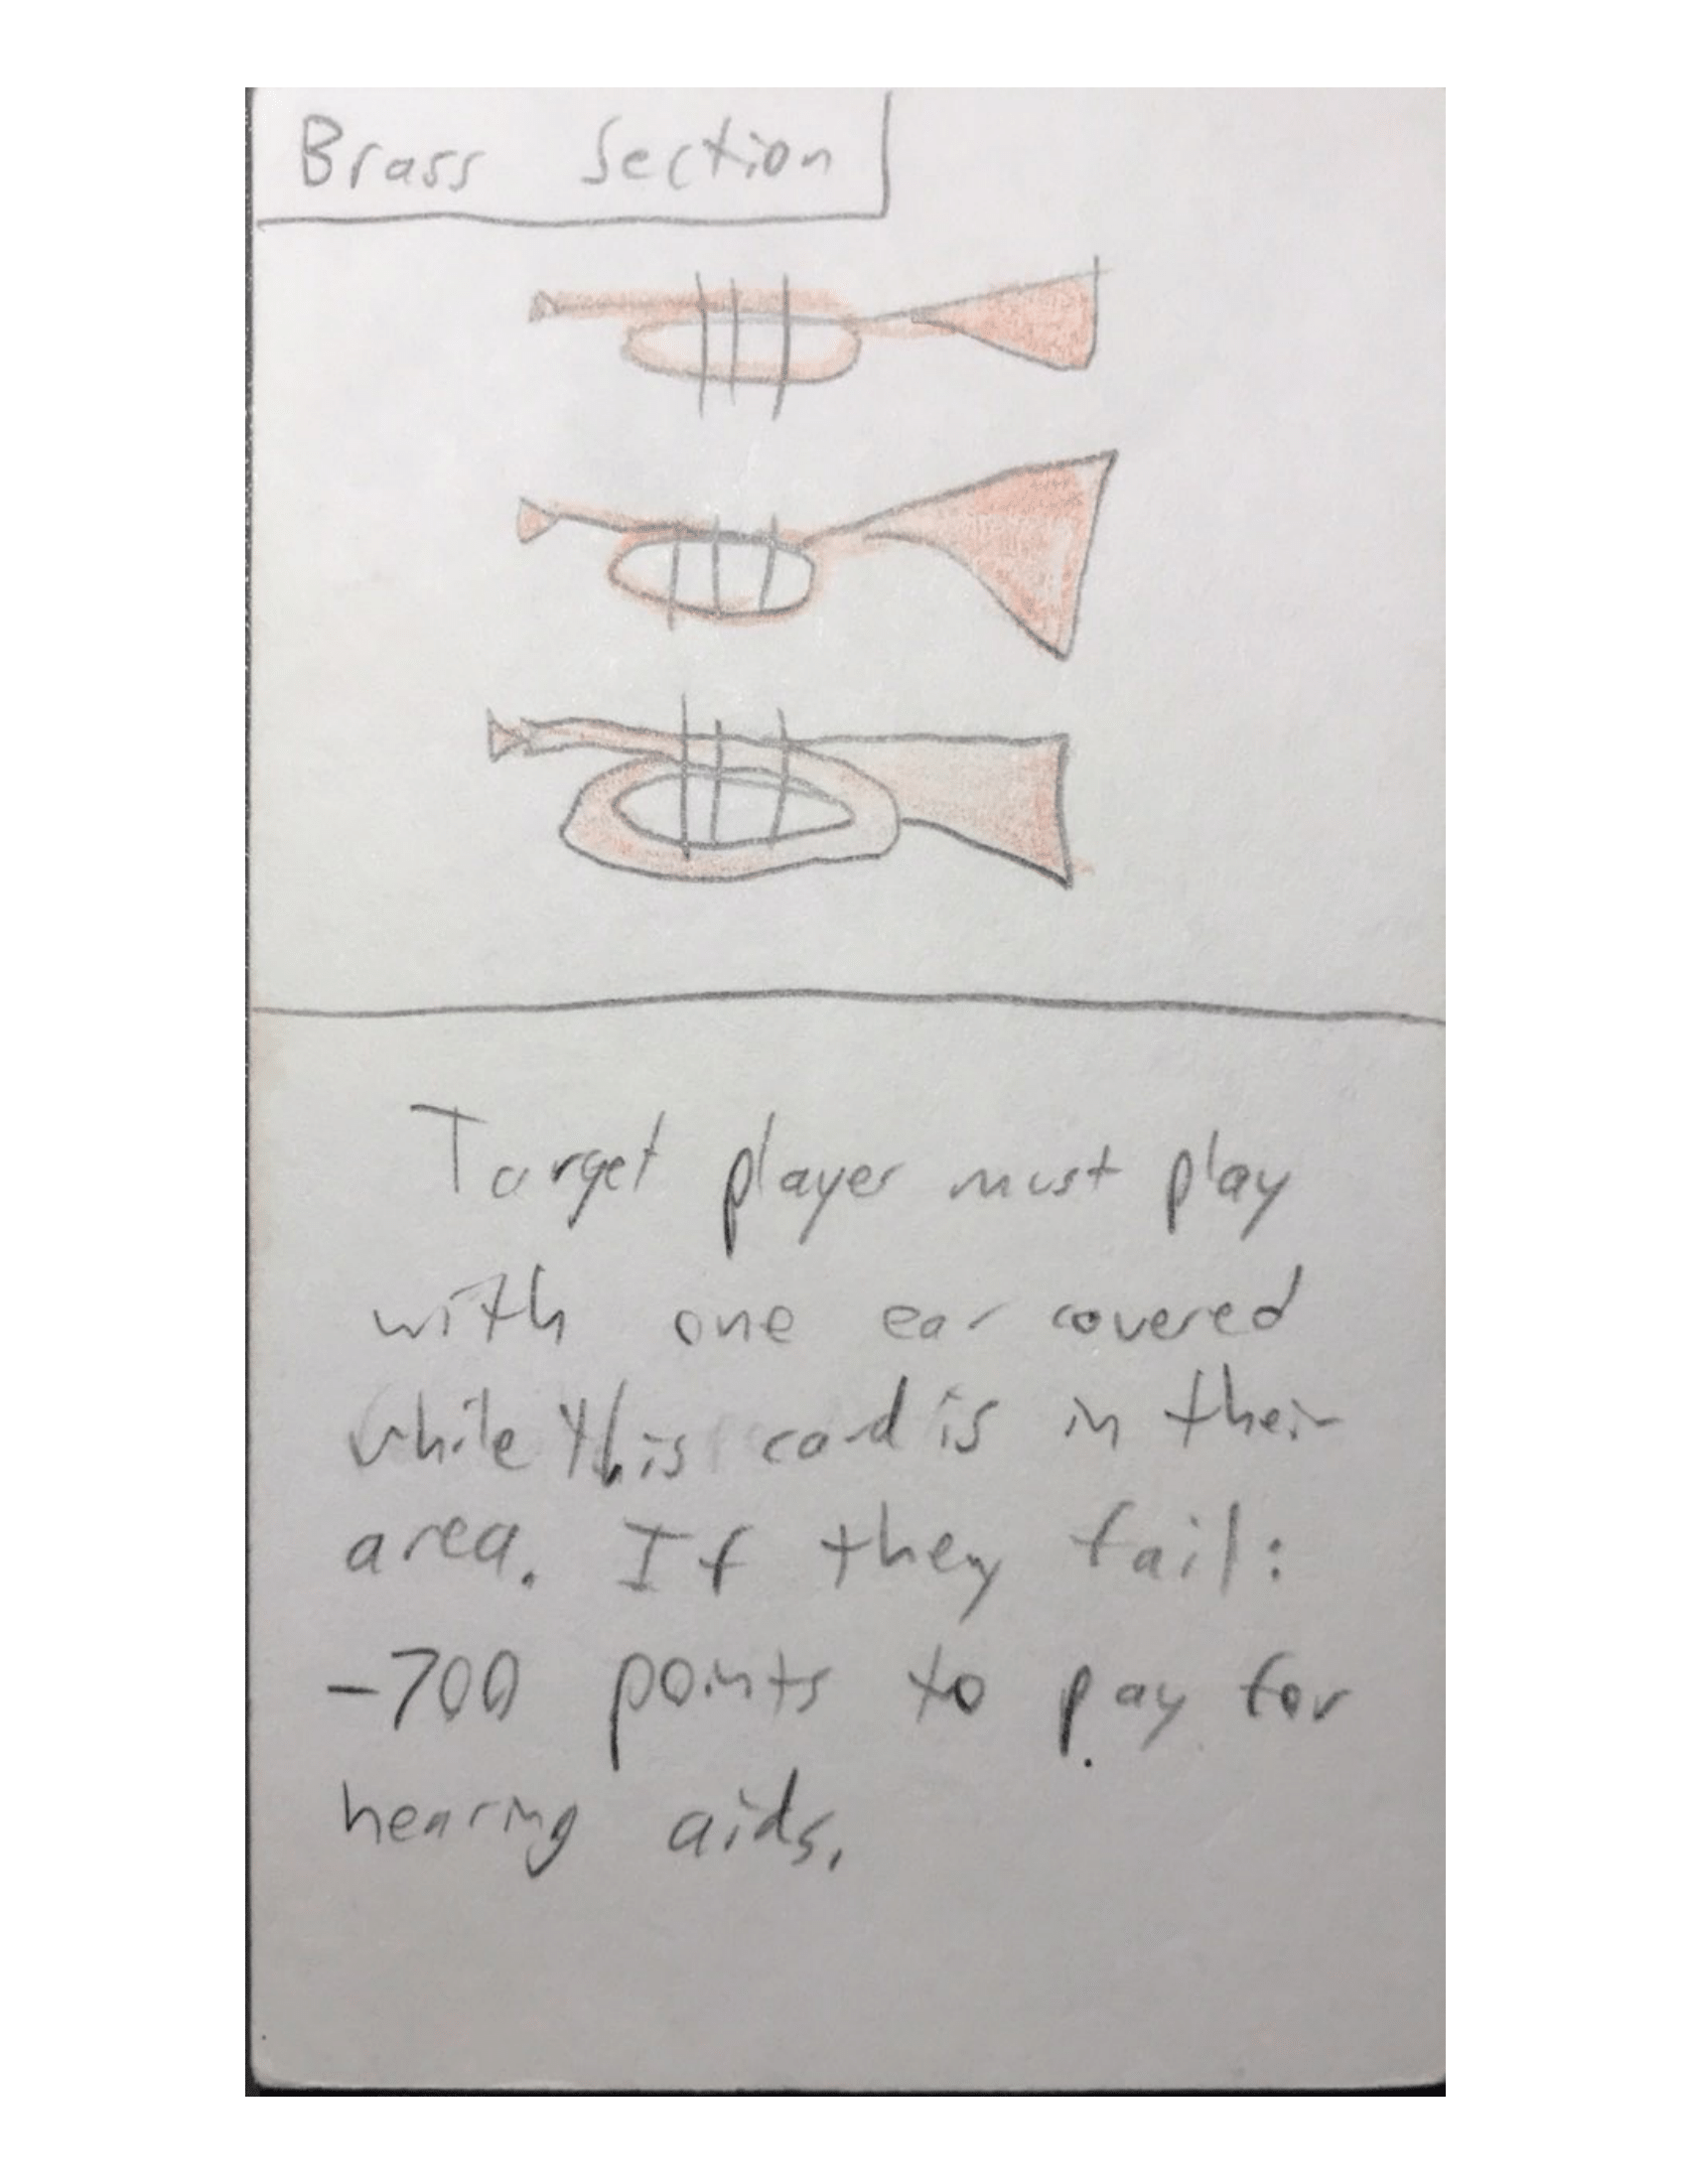 Brass Section
Target player must play
with one ear covered
while this card is in their
area. If they fail:
-700 points to pay for
hearing aids.